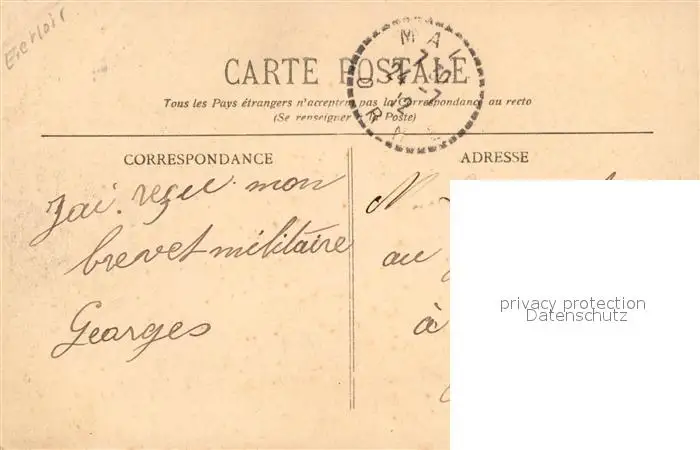 CARTE POSTALE
Tous les Pays étrangers n'acceptent pas la Correspondance au recto
(Se renseigner Poste)
MAL
7 30
24 -7
12
ORN
CORRESPONDANCE
ADRESSE
J'ai reçu mon
brevet militaire
Georges
au
à
privacy protection
Datenschutz